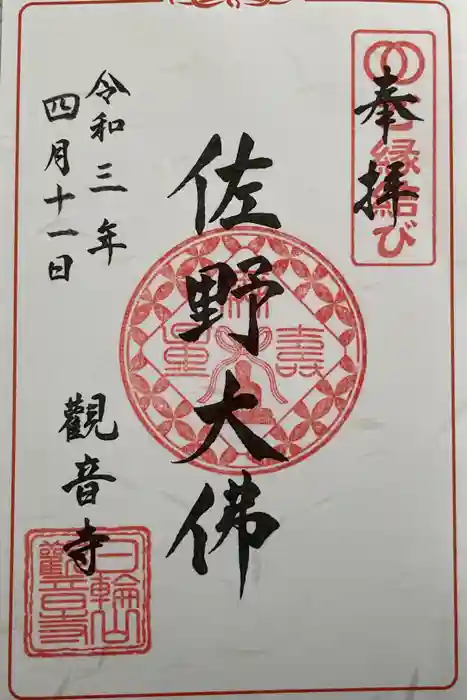 奉拝
ご縁結び
佐野大佛
令和三年
四月十一日
觀音寺
日輪山
觀音寺